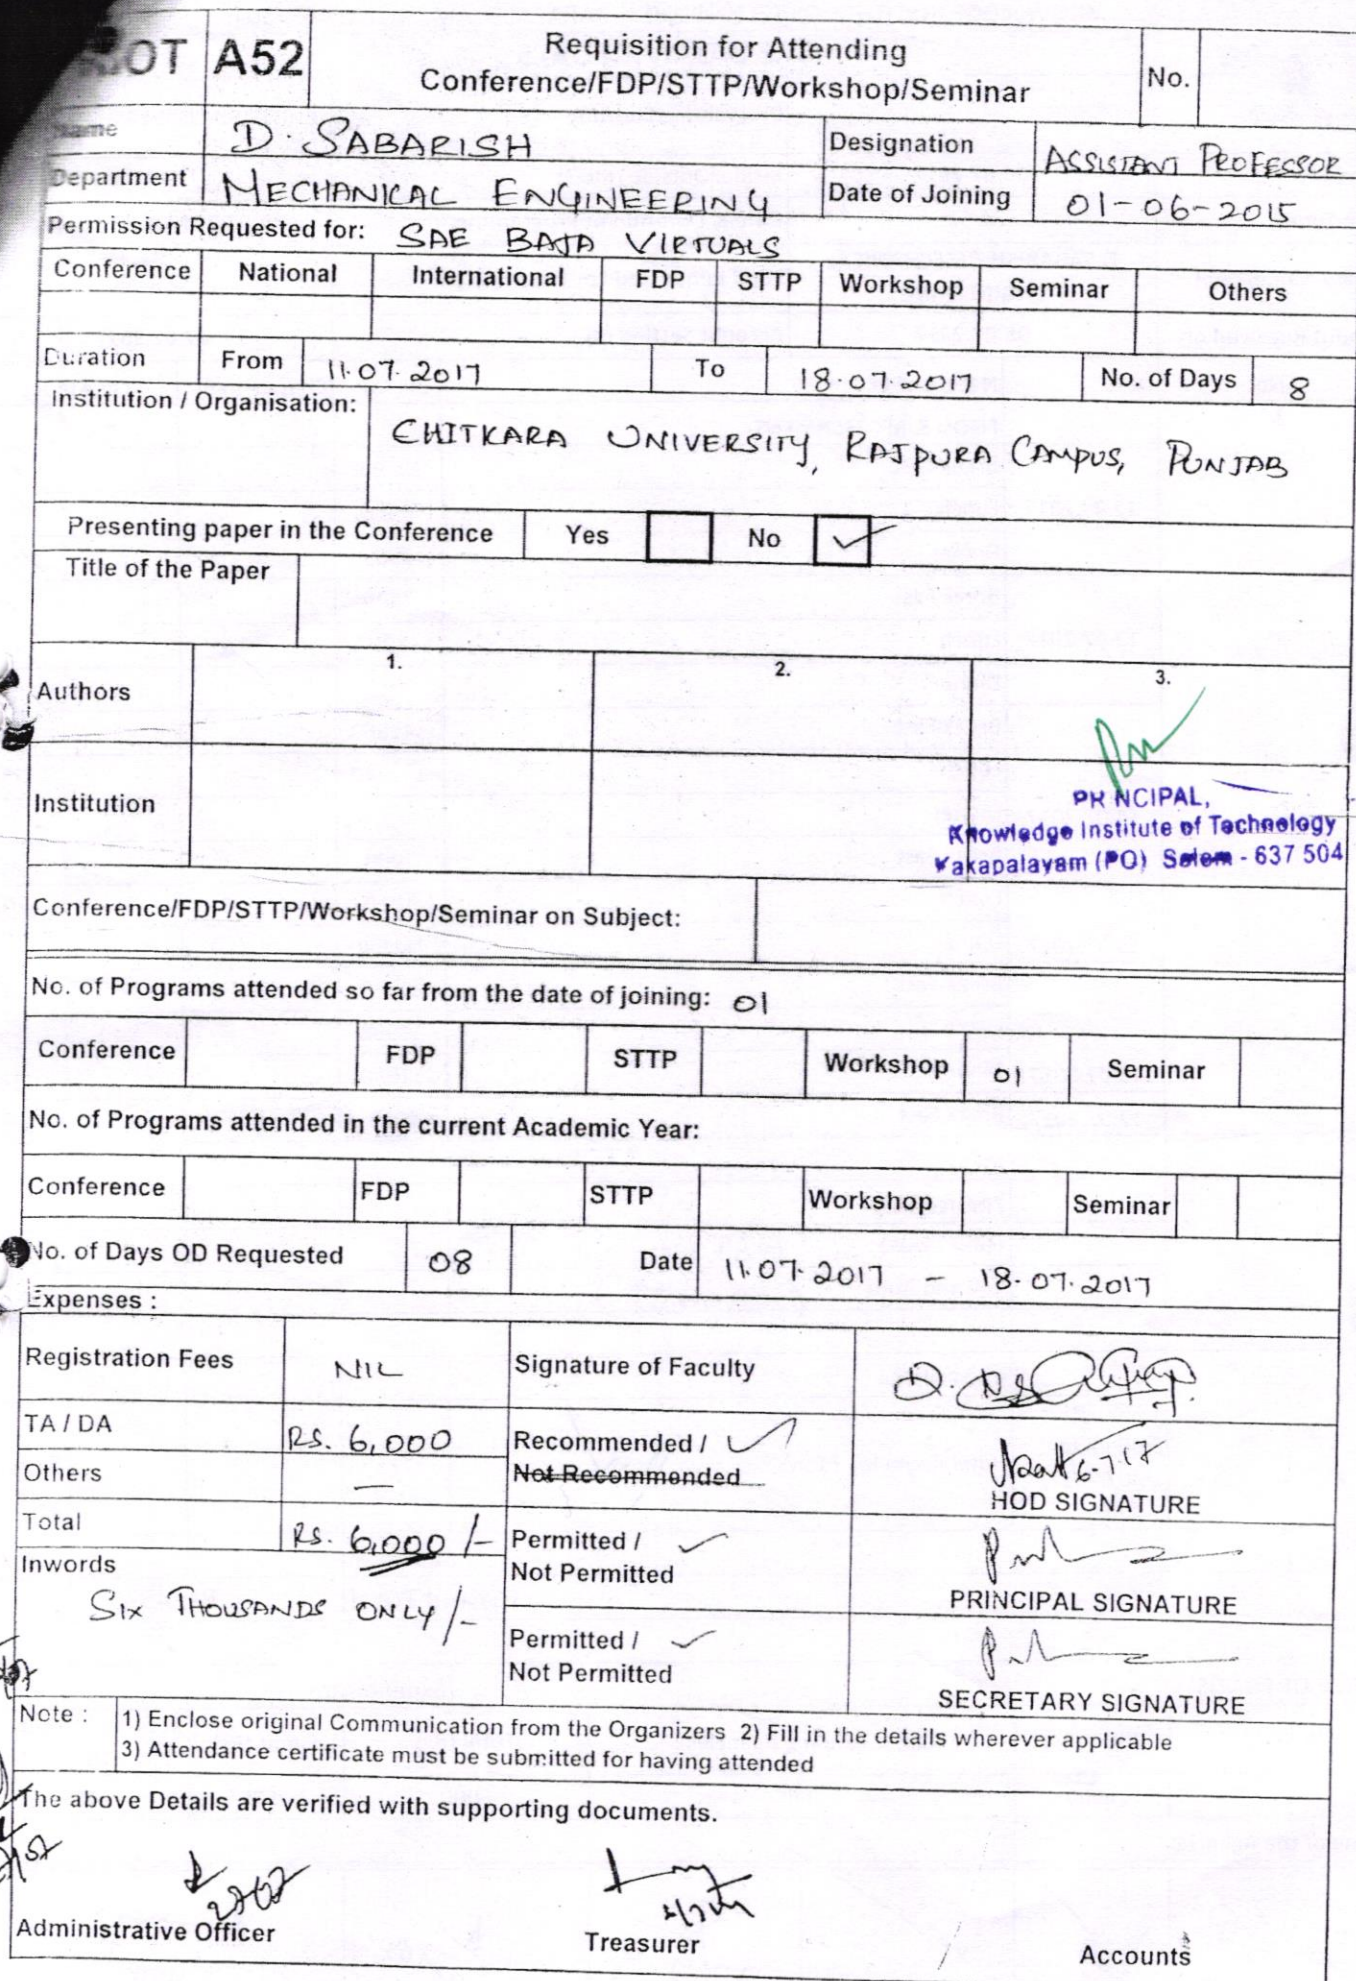 OT A52 Requisition for Attending
Conference/FDP/STTP/Workshop/Seminar No.
Name D. SABARISH Designation ASSISTANT PROFESSOR
Department MECHANICAL ENGINEERING Date of Joining 01-06-2015
Permission Requested for: SAE BAJA VIRTUALS
Conference National International FDP STTP Workshop Seminar Others
Duration From 11.07.2017 To 18.07.2017 No. of Days 8
Institution / Organisation:
CHITKARA UNIVERSITY, RAJPURA CAMPUS, PUNJAB
Presenting paper in the Conference Yes No ✓
Title of the Paper
Authors 1. 2. 3.
Institution
PRINCIPAL,
Knowledge Institute of Technology
Kakapalayam (PO) Salem - 637 504
Conference/FDP/STTP/Workshop/Seminar on Subject:
No. of Programs attended so far from the date of joining: 01
Conference FDP STTP Workshop 01 Seminar
No. of Programs attended in the current Academic Year:
Conference FDP STTP Workshop Seminar
No. of Days OD Requested 08 Date 11.07.2017 - 18.07.2017
Expenses :
Registration Fees NIL Signature of Faculty
TA / DA RS. 6,000 Recommended / ✓
Others — Not Recommended
6-7-17
HOD SIGNATURE
Total RS. 6,000/- Permitted / ✓
Not Permitted
PRINCIPAL SIGNATURE
Inwords
SIX THOUSANDS ONLY/-
Permitted / ✓
Not Permitted
SECRETARY SIGNATURE
Note : 1) Enclose original Communication from the Organizers 2) Fill in the details wherever applicable
3) Attendance certificate must be submitted for having attended
The above Details are verified with supporting documents.
Administrative Officer Treasurer Accounts